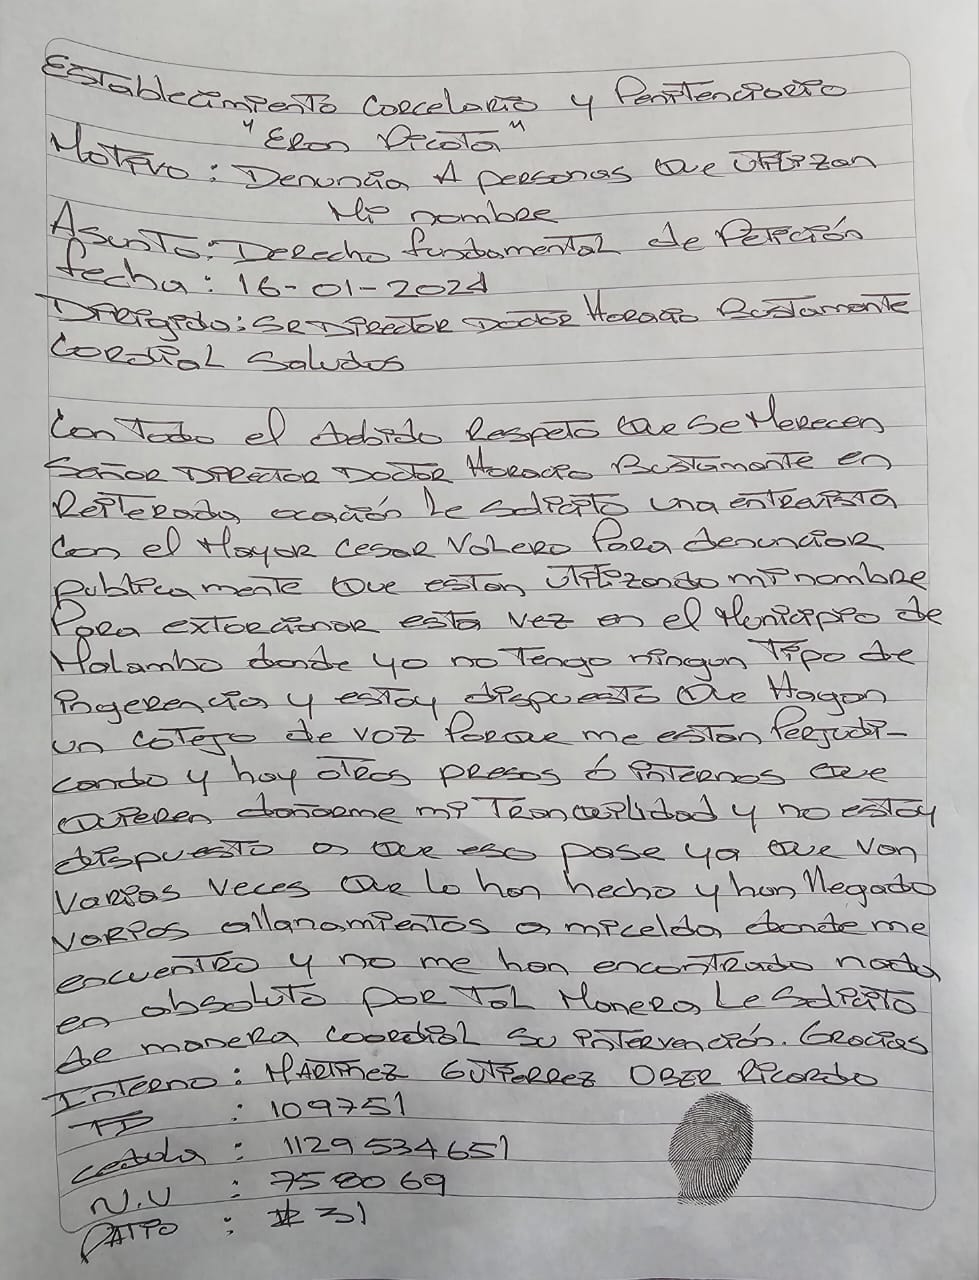 Establecimiento Carcelario y Penitenciario
"Eron Picota"
Motivo: Denuncia A personas que utilizan
Mi nombre
Asunto: Derecho fundamental de Petición
fecha: 16-01-2024
Dirigido: Sr Director Doctor Horacio Bustamante
Cordial Saludos
Con Todo el debido Respeto que se Merecen
Señor Director Doctor Horacio Bustamante en
Reiterada ocación le solicito una entravista
Con el Mayor Cesar Valero Para denunciar
publicamente que estan utilizando mi nombre
Para extorcionar esta vez en el Municipio de
Malambo donde yo no Tengo ningun Tipo de
ingerencia y estoy dispuesto que Hagan
un cotejo de voz Porque me estan Perjudi-
cando y hay otros presos ó internos que
quieren dañarme mi Tranquilidad y no estoy
dispuesto a que eso pase ya que van
varias veces que lo han hecho y han llegado
varios allanamientos a mi celda donde me
encuentro y no me han encontrado nada
en absoluto por Tal Manera le solicito
de manera coordial su intervención. Gracias
Interno: Martinez Gutierrez Ober Ricardo
TD : 109751
cedula : 1129534651
N.U : 758069
Patio : # 31